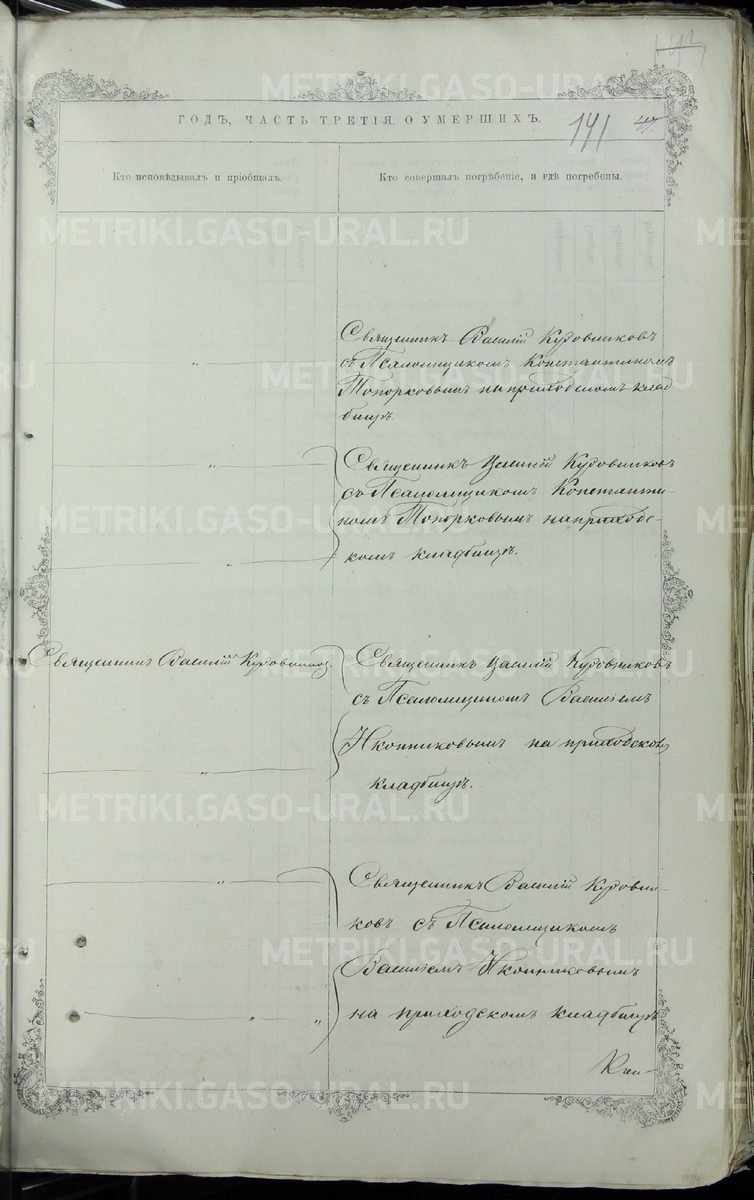 ГОДЪ, ЧАСТЬ ТРЕТІЯ О УМЕРШИХЪ.
141
Кто исповѣдывалъ и пріобщалъ.
Кто совершалъ погрѣбеніе, и гдѣ погребены.
Священникъ Василій Кудовниковъ
съ Псаломщикомъ Константиномъ
Топорковымъ на приходскомъ клад
бищѣ.
Священникъ Василій Кудовниковъ
съ Псаломщикомъ Константи-
номъ Топорковымъ на приходс-
комъ кладбищѣ.
Священникъ Василій Кудовниковъ.
Священникъ Василій Кудовниковъ
съ Псаломщикомъ Василіемъ
Иконниковымъ на приходском
кладбищѣ.
Священникъ Василій Кудовни-
ковъ съ Псаломщикомъ
Василіемъ Иконниковымъ
на приходскомъ кладбищѣ
METRIKI.GASO-URAL.RU